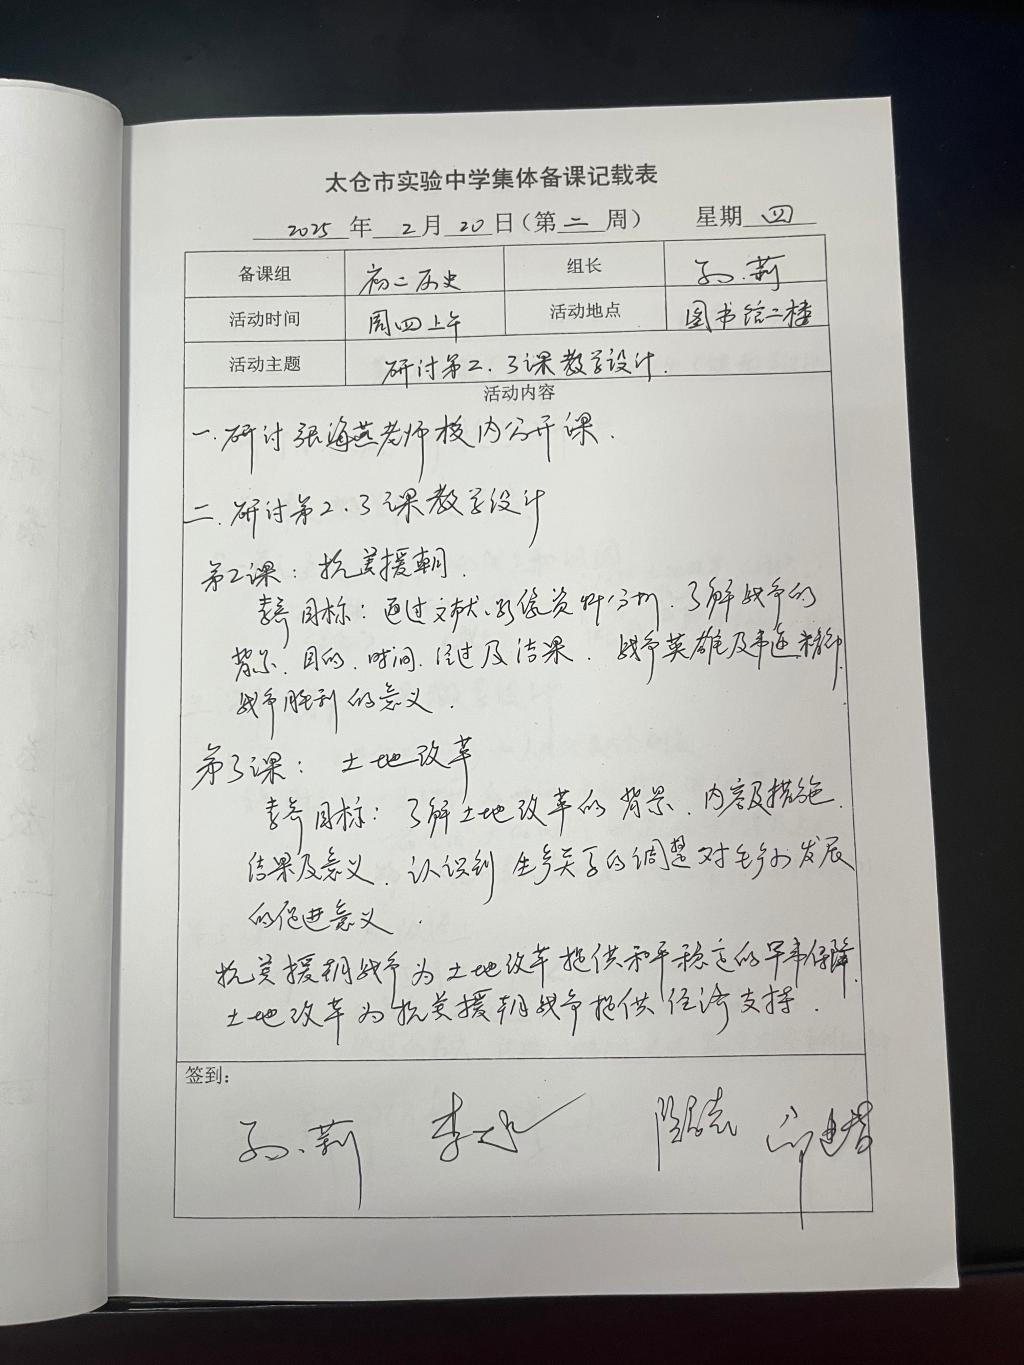 太仓市实验中学集体备课记载表
2025年 2月 20日(第二周) 星期四
备课组 初二历史 组长 孙莉
活动时间 周四上午 活动地点 图书馆二楼
活动主题 研讨第2、3课教学设计.
活动内容
一.研讨张海燕老师校内公开课.
二.研讨第2、3课教学设计
第2课：抗美援朝.
素养目标：通过文献、影像资料分析、了解战争的
背景、目的、时间、经过及结果、战争英雄及事迹、精神、
战争胜利的意义.
第3课：土地改革
素养目标：了解土地改革的背景、内容及措施、
结果及意义、认识到生产关系的调整对生产力发展
的促进意义.
抗美援朝战争为土地改革提供和平稳定的军事保障.
土地改革为抗美援朝战争提供经济支持.
签到：
孙莉